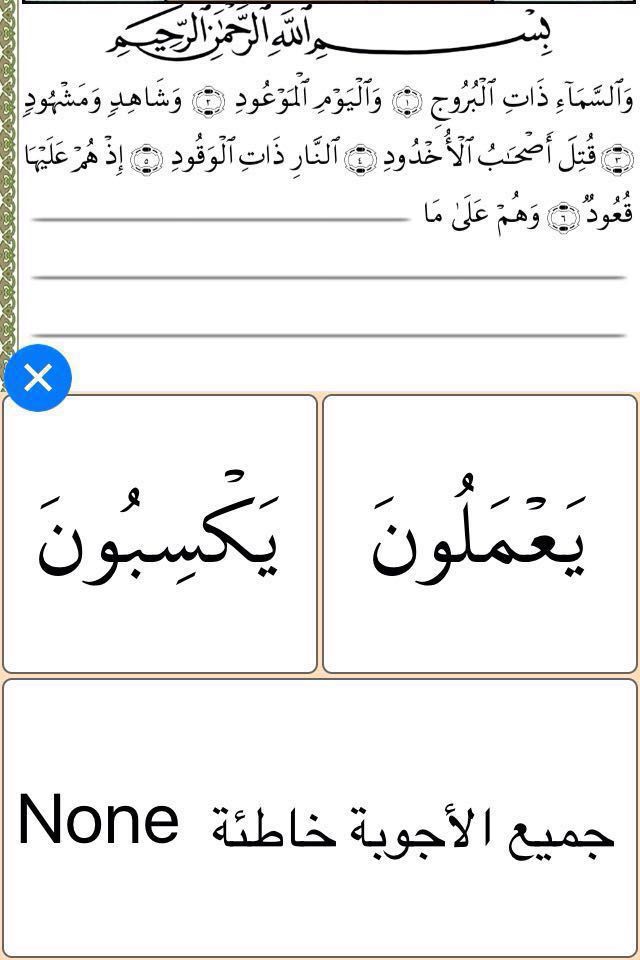 بِسْمِ ٱللَّهِ ٱلرَّحْمَٰنِ ٱلرَّحِيمِ
وَٱلسَّمَآءِ ذَاتِ ٱلْبُرُوجِ ١ وَٱلْيَوْمِ ٱلْمَوْعُودِ ٢ وَشَاهِدٍ وَمَشْهُودٍ
٣ قُتِلَ أَصْحَٰبُ ٱلْأُخْدُودِ ٤ ٱلنَّارِ ذَاتِ ٱلْوَقُودِ ٥ إِذْ هُمْ عَلَيْهَا
قُعُودٌ ٦ وَهُمْ عَلَىٰ مَا
يَعْمَلُونَ
يَكْسِبُونَ
جميع الأجوبة خاطئة None